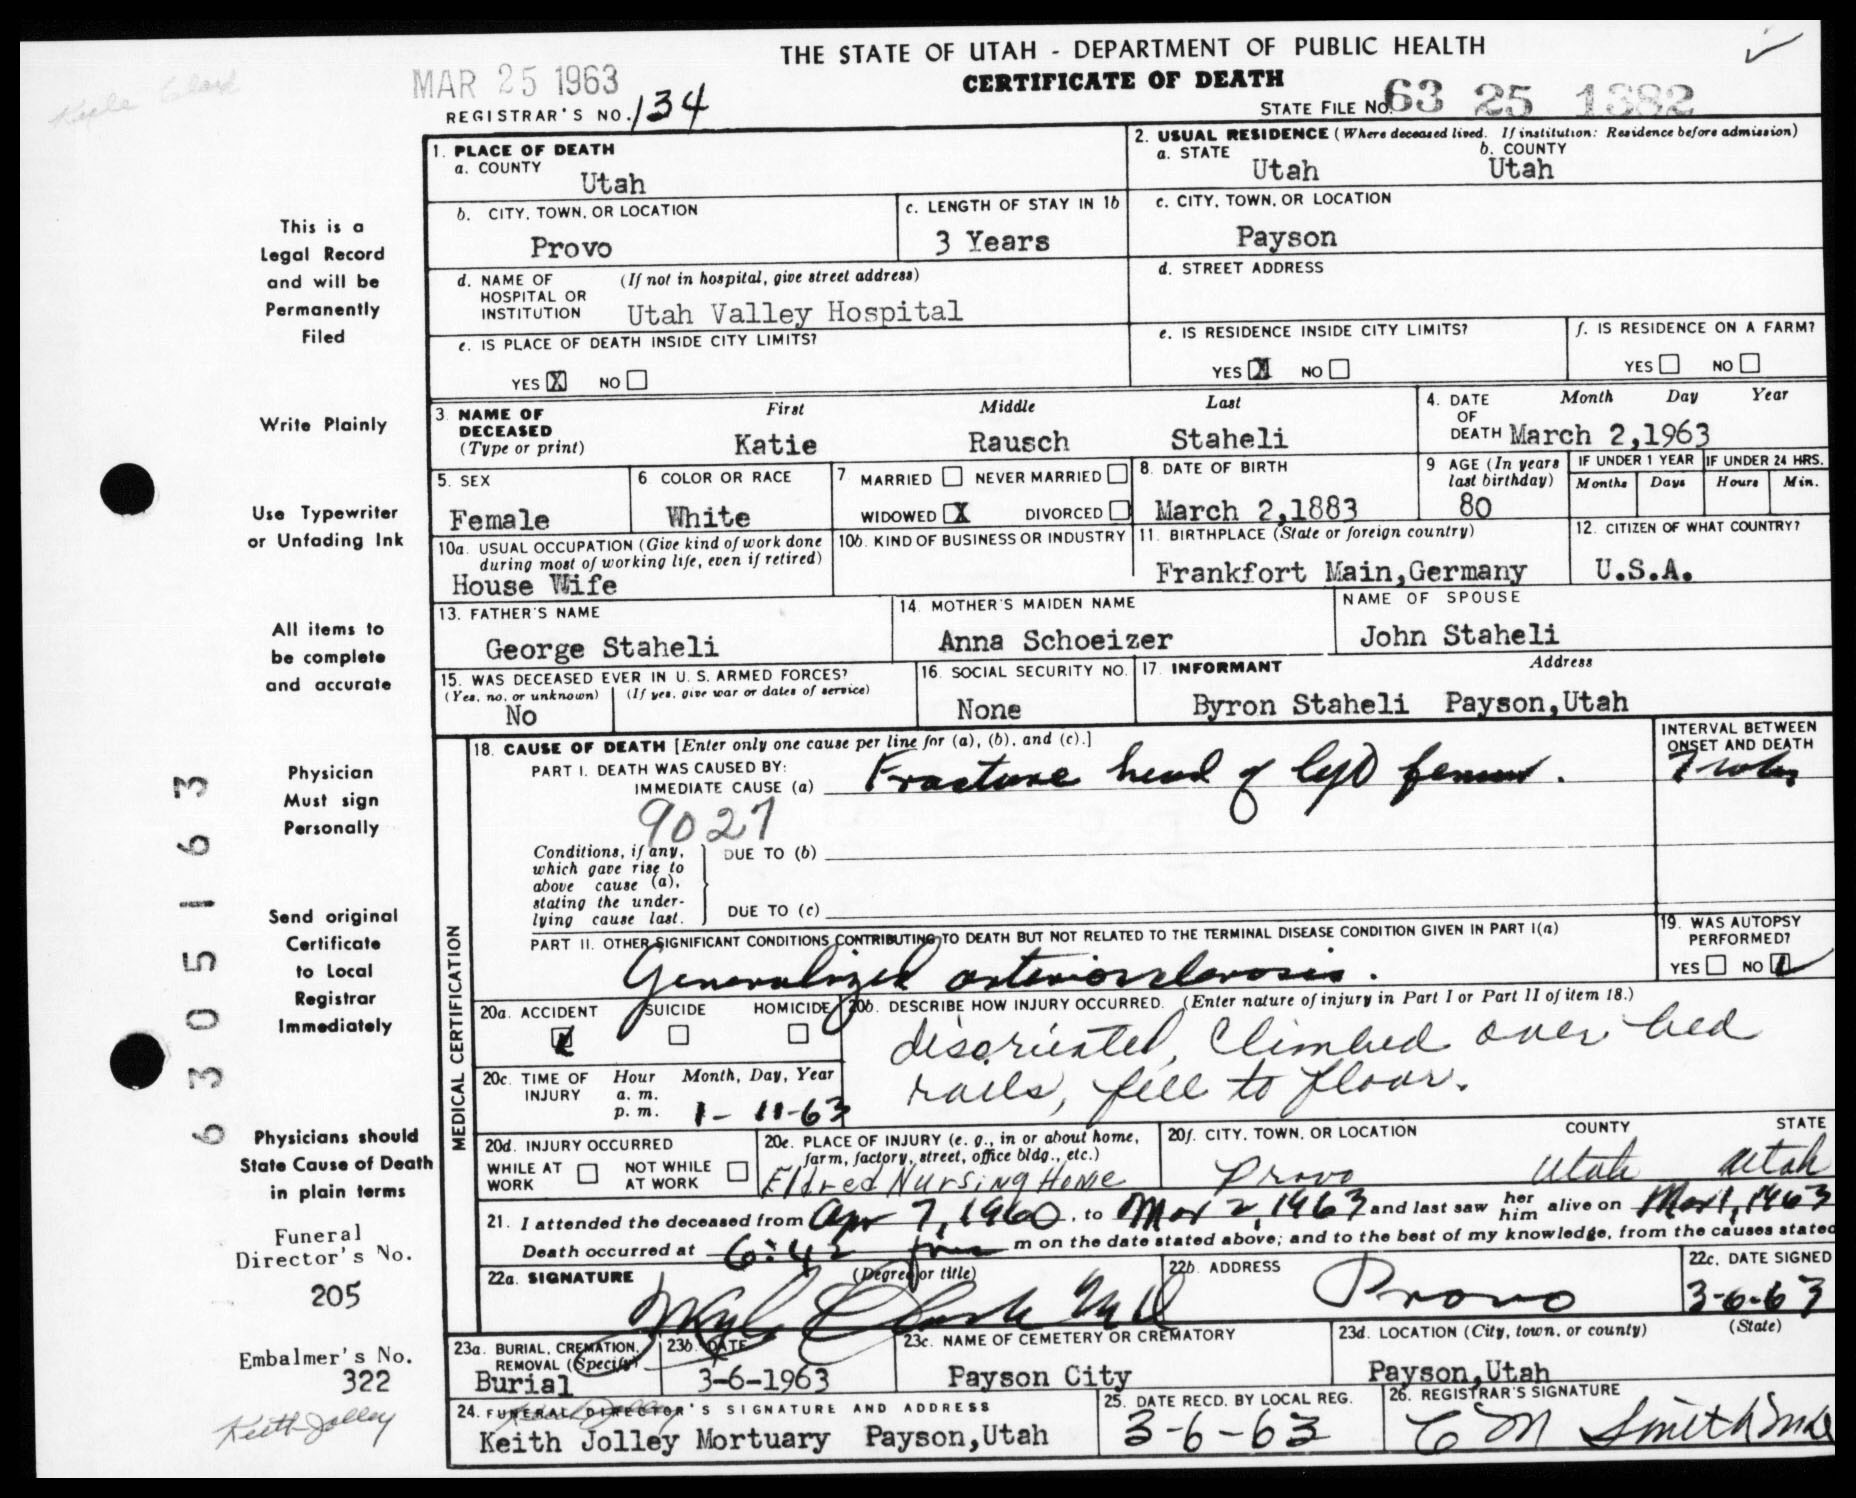 THE STATE OF UTAH - DEPARTMENT OF PUBLIC HEALTH
CERTIFICATE OF DEATH
MAR 25 1963
REGISTRAR'S NO. 134
STATE FILE NO. 63 25 1382
1. PLACE OF DEATH
a. COUNTY
Utah
2. USUAL RESIDENCE (Where deceased lived. If institution: Residence before admission)
a. STATE
Utah
b. COUNTY
Utah
b. CITY, TOWN, OR LOCATION
Provo
c. LENGTH OF STAY IN 1b
3 Years
c. CITY, TOWN, OR LOCATION
Payson
d. NAME OF HOSPITAL OR INSTITUTION
(If not in hospital, give street address)
Utah Valley Hospital
d. STREET ADDRESS
e. IS PLACE OF DEATH INSIDE CITY LIMITS?
YES X NO
e. IS RESIDENCE INSIDE CITY LIMITS?
YES X NO
f. IS RESIDENCE ON A FARM?
YES NO
3. NAME OF DECEASED (Type or print)
First Middle Last
Katie Rausch Staheli
4. DATE OF DEATH
Month Day Year
March 2,1963
5. SEX
Female
6 COLOR OR RACE
White
7 MARRIED NEVER MARRIED
WIDOWED X DIVORCED
8. DATE OF BIRTH
March 2,1883
9 AGE (In years last birthday)
80
IF UNDER 1 YEAR
Months Days
IF UNDER 24 HRS.
Hours Min.
10a. USUAL OCCUPATION (Give kind of work done during most of working life, even if retired)
House Wife
10b. KIND OF BUSINESS OR INDUSTRY
11. BIRTHPLACE (State or foreign country)
Frankfort Main,Germany
12. CITIZEN OF WHAT COUNTRY?
U.S.A.
13. FATHER'S NAME
George Staheli
14. MOTHER'S MAIDEN NAME
Anna Schoeizer
NAME OF SPOUSE
John Staheli
15. WAS DECEASED EVER IN U. S. ARMED FORCES?
(Yes, no, or unknown) (If yes, give war or dates of service)
No
16. SOCIAL SECURITY NO.
None
17. INFORMANT Address
Byron Staheli Payson,Utah
MEDICAL CERTIFICATION
18. CAUSE OF DEATH [Enter only one cause per line for (a), (b), and (c).]
PART I. DEATH WAS CAUSED BY:
IMMEDIATE CAUSE (a) Fracture head of left femur.
INTERVAL BETWEEN ONSET AND DEATH
9027
Conditions, if any, which gave rise to above cause (a), stating the underlying cause last.
DUE TO (b)
DUE TO (c)
PART II. OTHER SIGNIFICANT CONDITIONS CONTRIBUTING TO DEATH BUT NOT RELATED TO THE TERMINAL DISEASE CONDITION GIVEN IN PART I(a)
Generalized arteriosclerosis.
19. WAS AUTOPSY PERFORMED?
YES NO
20a. ACCIDENT SUICIDE HOMICIDE
20b. DESCRIBE HOW INJURY OCCURRED. (Enter nature of injury in Part I or Part II of item 18.)
disoriented, Climbed over bed
rails, fell to floor.
20c. TIME OF INJURY
Hour Month, Day, Year
a. m.
p. m. 1-11-63
20d. INJURY OCCURRED
WHILE AT WORK NOT WHILE AT WORK
20e. PLACE OF INJURY (e. g., in or about home, farm, factory, street, office bldg., etc.)
Eldred Nursing Home
20f. CITY, TOWN, OR LOCATION COUNTY STATE
Provo Utah Utah
21. I attended the deceased from Apr 7, 1960, to Mar 2, 1963 and last saw her him alive on Mar 1, 1963
Death occurred at 6:42 pm m on the date stated above; and to the best of my knowledge, from the causes stated
22a. SIGNATURE (Degree or title)
Clark MD
22b. ADDRESS
Provo
22c. DATE SIGNED
3-6-63
23a. BURIAL, CREMATION, REMOVAL (Specify)
Burial
23b. DATE
3-6-1963
23c. NAME OF CEMETERY OR CREMATORY
Payson City
23d. LOCATION (City, town, or county) (State)
Payson,Utah
24. FUNERAL DIRECTOR'S SIGNATURE AND ADDRESS
Keith Jolley Mortuary Payson,Utah
25. DATE RECD. BY LOCAL REG.
3-6-63
26. REGISTRAR'S SIGNATURE
C M Smith
This is a
Legal Record
and will be
Permanently
Filed
Write Plainly
Use Typewriter
or Unfading Ink
All items to
be complete
and accurate
Physician
Must sign
Personally
Send original
Certificate
to Local
Registrar
Immediately
Physicians should
State Cause of Death
in plain terms
Funeral
Director's No.
205
Embalmer's No.
322
Keith Jolley
6305163